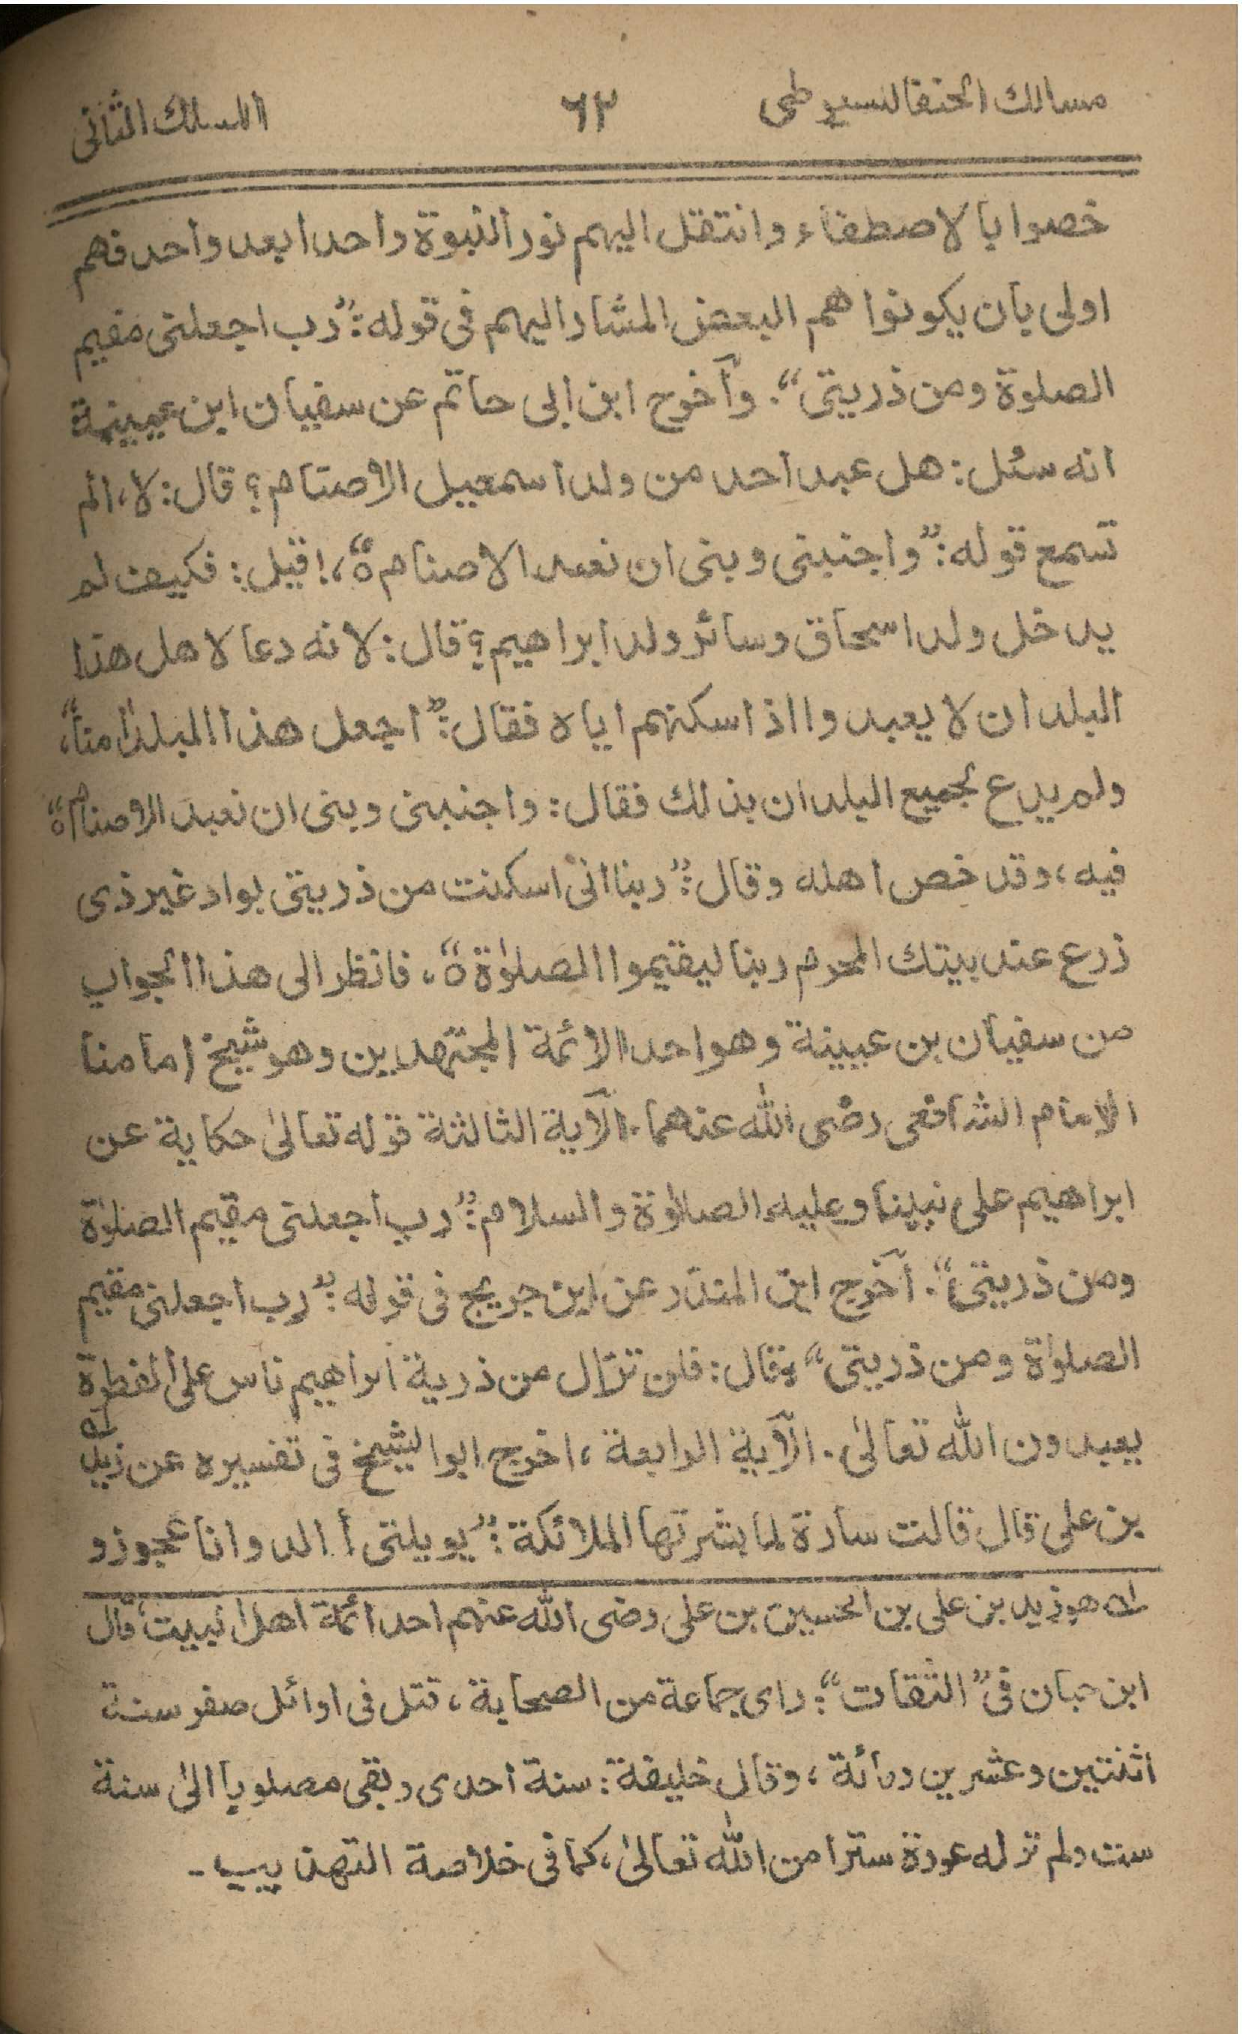 مسالك الحنفا للسيوطى ٦٢ المسلك الثانى
خصوا بالاصطفاء وانتقل اليهم نور النبوة واحدا بعد واحد فهم
اولى بان يكونوا هم البعض المشار اليهم فى قوله :”رب اجعلنى مقيم
الصلوة ومن ذريتى“. وأخرج ابن ابى حاتم عن سفيان ابن عيينة
انه سئل: هل عبد احد من ولد اسمعيل الاصنام؟ قال: لا، الم
تسمع قوله:”واجنبنى وبنى ان نعبد الاصنام ٥“،! قيل: فكيف لم
يدخل ولد اسحاق وسائر ولد ابراهيم؟ قال: لانه دعا لاهل هذا
البلد ان لا يعبدوا اذ اسكنهم اياه فقال:”اجعل هذا البلد اٰمنا“،
ولم يدع لجميع البلدان بذلك فقال: واجنبنى وبنى ان نعبد الاصنام ٥“
فيه، وقد خص اهله وقال:”ربنا انى اسكنت من ذريتى بواد غير ذى
زرع عند بيتك المحرم ربنا ليقيموا الصلوٰة ٥“، فانظر الى هذا الجواب
من سفيان بن عيينة وهو احد الائمة المجتهدين وهو شيخ امامنا
الامام الشافعى رضى الله عنهما. الآية الثالثة قوله تعالىٰ حكاية عن
ابراهيم على نبينا وعليه الصلوٰة والسلام:”رب اجعلنى مقيم الصلوٰة
ومن ذريتى“. أخرج ابن المنذر عن ابن جريج فى قوله:”رب اجعلنى مقيم
الصلوٰة ومن ذريتى“ قال: فلن تزال من ذرية ابراهيم ناس على الفطرة
يعبدون الله تعالىٰ. الآية الرابعة، اخرج ابو الشيخ فى تفسيره عن زيد له
بن على قال قالت سارة لما بشرتها الملائكة:”يويلتى أ الد وانا عجوز و
له هو زيد بن على بن الحسين بن على رضى الله عنهم احد ائمة اهل البيت، قال
ابن حبان فى”الثقات“: راى جماعة من الصحابة، قتل فى اوائل صفر سنة
اثنتين وعشرين ومائة، وقال خليفة: سنة احدى وبقى مصلوبا الىٰ سنة
ست ولم تر له عورة سترا من الله تعالىٰ، كما فى خلاصة التهذيب -